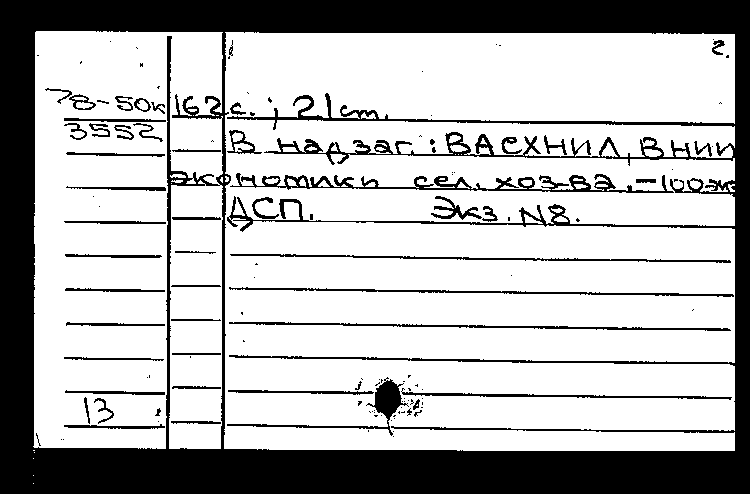 2.
78-50к 162 с. ; 21 cm.
3552 В надзаг. : ВАСХНИЛ, ВНИИ
экономики сел. хоз-ва. - 100 экз
ДСП. Экз. N8.
13